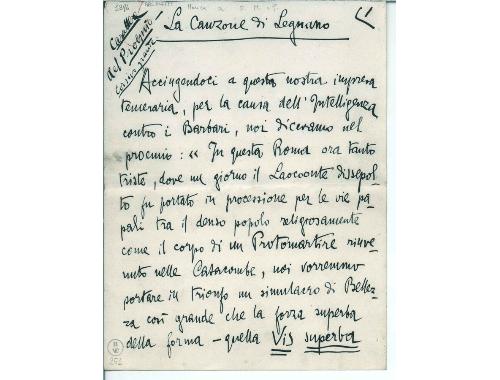 La Canzone di Legnano
Accingendoci a questa nostra impresa
temeraria, per la causa dell'Intelligenza
contro i Barbari, noi dicevamo nel
proemio: « In questa Roma ora tanto
triste, dove un giorno il Laocoonte dissepol-
to fu portato in processione per le vie pa-
pali tra il denso popolo religiosamente
come il corpo di un Protomartire rinve-
nuto nelle Catacombe, noi vorremmo
portare in trionfo un simulacro di Bellez-
za così grande che la forza superba
della forma – quella Vis superba